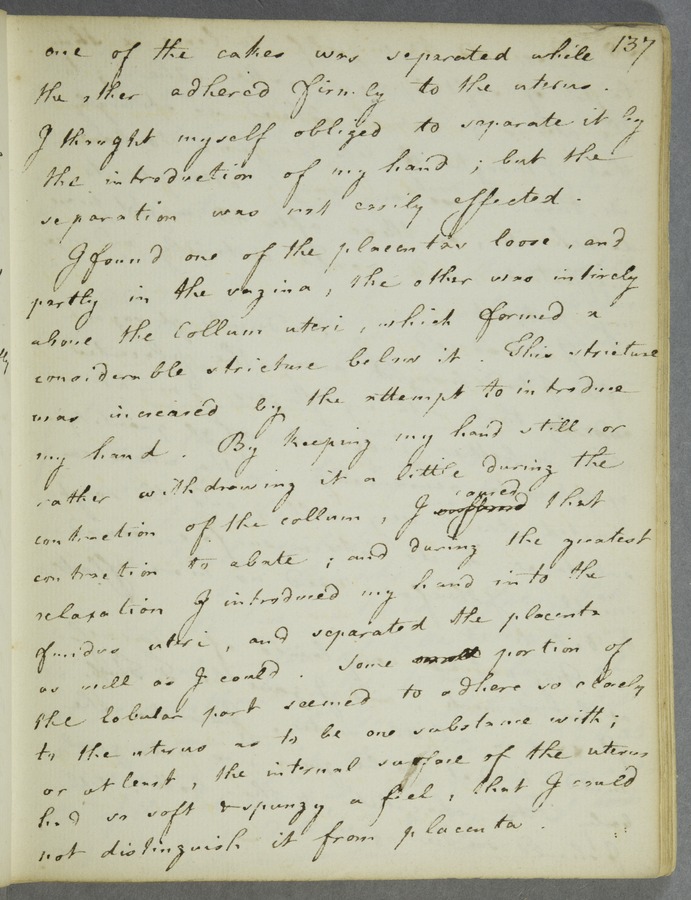 137
one of the cakes was separated while
the other adhered firmly to the uterus.
I thought myself obliged to separate it by
the introduction of my hand; but the
separation was not easily effected.
I found one of the placentas loose, and
partly in the vagina, the other was intirely
above the Collum uteri, which formed a
considerable stricture below it. This stricture
was increased by the attempt to introduce
my hand. By keeping my hand still, or
rather withdrawing it a little during the
contraction of the collum, I caused that
contraction to abate; and during the greatest
relaxation I introduced my hand into the
fundus uteri, and separated the placenta
as well as I could. Some small portion of
the lobular part seemed to adhere so closely
to the uterus as to be one substance with;
or at least, the internal surface of the uterus
had so soft & spungy a feel, that I could
not distinguish it from placenta.